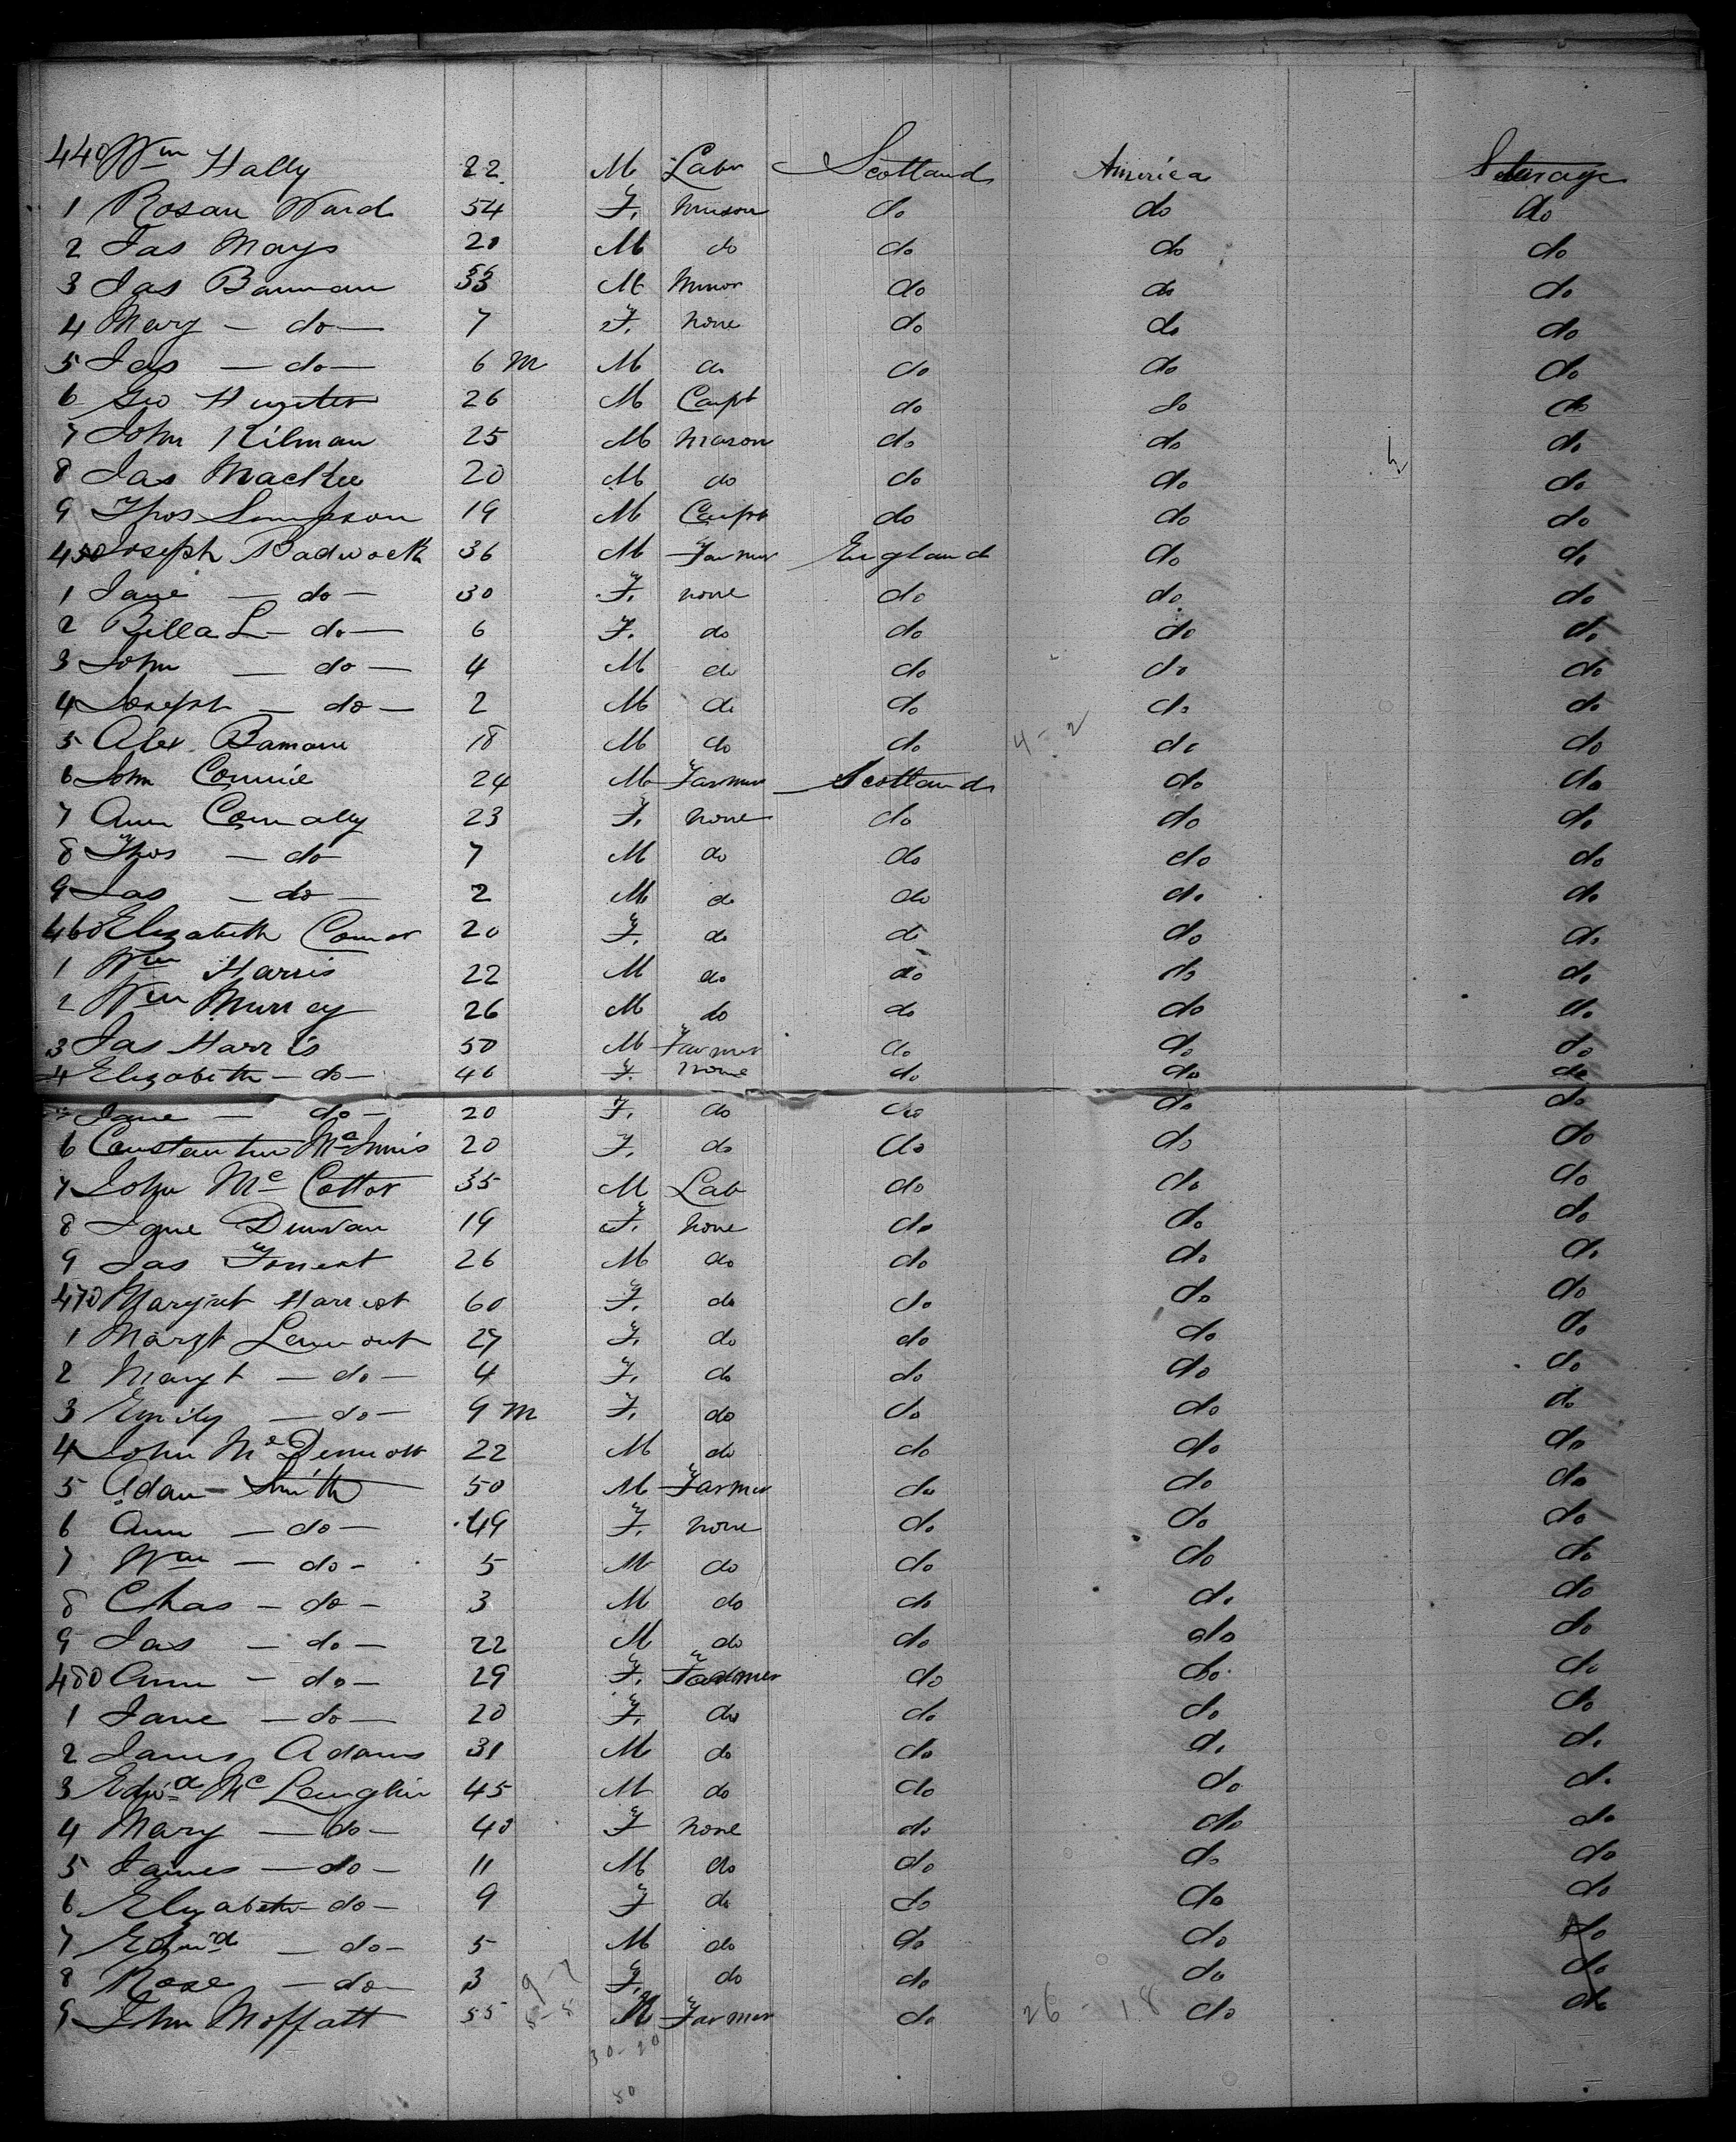 440 Wm Hally 22 M Labr Scotland America Steerage
1 Rosan Ward 54 F. do do do
2 Jas Mays 21 M do do do do
3 Jas Bauman M Minor do do do
4 Mary — do — 7 F. none do do do
5 Jas — do — 6 m M do do do do
6 Geo Hunter 26 M Carpt do do do
7 John Kilman 25 M Mason do do do
8 Jas MacKee 20 M do do do do
9 Thos Simpson 19 M Carpt do do do
450 Joseph Badworth 36 M Farmer England do do
1 Jane — do — 30 F. none do do do
2 Billa L — do — 6 F. do do do do
3 John — do — 4 M do do do do
4 Joseph — do — 2 M do do do do
5 Alex. Bamane 18 M do do 4 - 2 do do
6 John Connie 24 M Farmer Scotland do do
7 Ann Connally 23 F. none do do do
8 Thos — do 7 M do do do do
9 Jas — do — 2 M do do do do
460 Elizabeth Connor 20 F. do do do do
1 Wm Harris 22 M do do do do
2 Wm Murray 26 M do do do do
3 Jas Harris 50 M Farmer do do do
4 Elizabeth — do — 46 F. none do do do
Jane — do — 20 F. do do do do
6 Constantine McInnis 20 F. do do do do
7 John Mc Cottor 35 M Lab do do do
8 Jane Dunvan 19 F. none do do do
9 Jas Forrest 26 M do do do do
470 Margret Harriot 60 F. do do do do
1 Margt Lemmont 27 F. do do do do
2 Margt — do — 4 F. do do do do
3 Emily — do — 9 m F. do do do do
4 John McDermott 22 M do do do do
5 Adam Smith 50 M Farmer do do do
6 Ann — do — 49 F. none do do do
7 Wm — do — 5 M do do do do
8 Chas — do — 3 M do do do do
9 Jas — do — 22 M do do do do
480 Ann — do — 29 F. Farmer do do do
1 Jane — do — 20 F. do do do do
2 James Adams 31 M do do do do
3 Edwd Mc Laughlin 45 M do do do do
4 Mary — do — 40 F none do do do
5 James — do — 11 M do do do do
6 Elizabeth — do — 9 F do do do do
7 Edwd — do — 5 M do do do do
8 Rose — do — 3 F. do do do do
9 John Moffatt 55 M Farmer do 26 - 18 do do
30 - 20
50